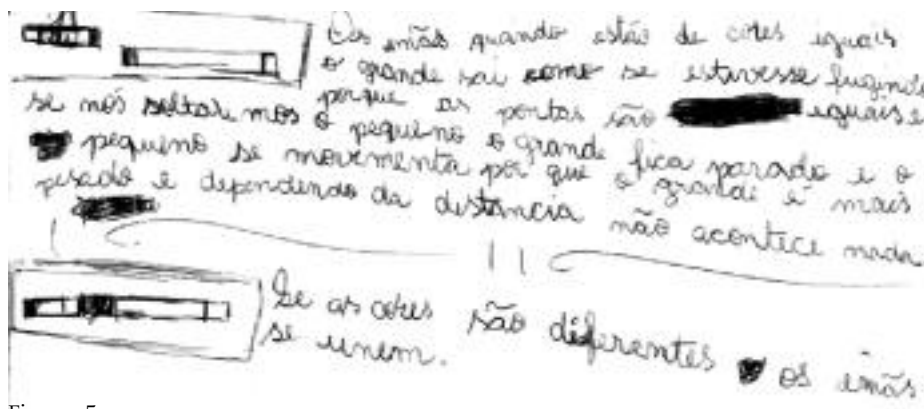 Os imãs quando estão de cores iguais
o grande sai como se estivesse fugindo
porque as pontas são iguais e
se nós soltaremos o pequeno o grande fica parado e o
pequeno se movimenta por que o grande é mais
pesado e dependendo da distância não acontece nada
Se as cores são diferentes os imãs
se unem.